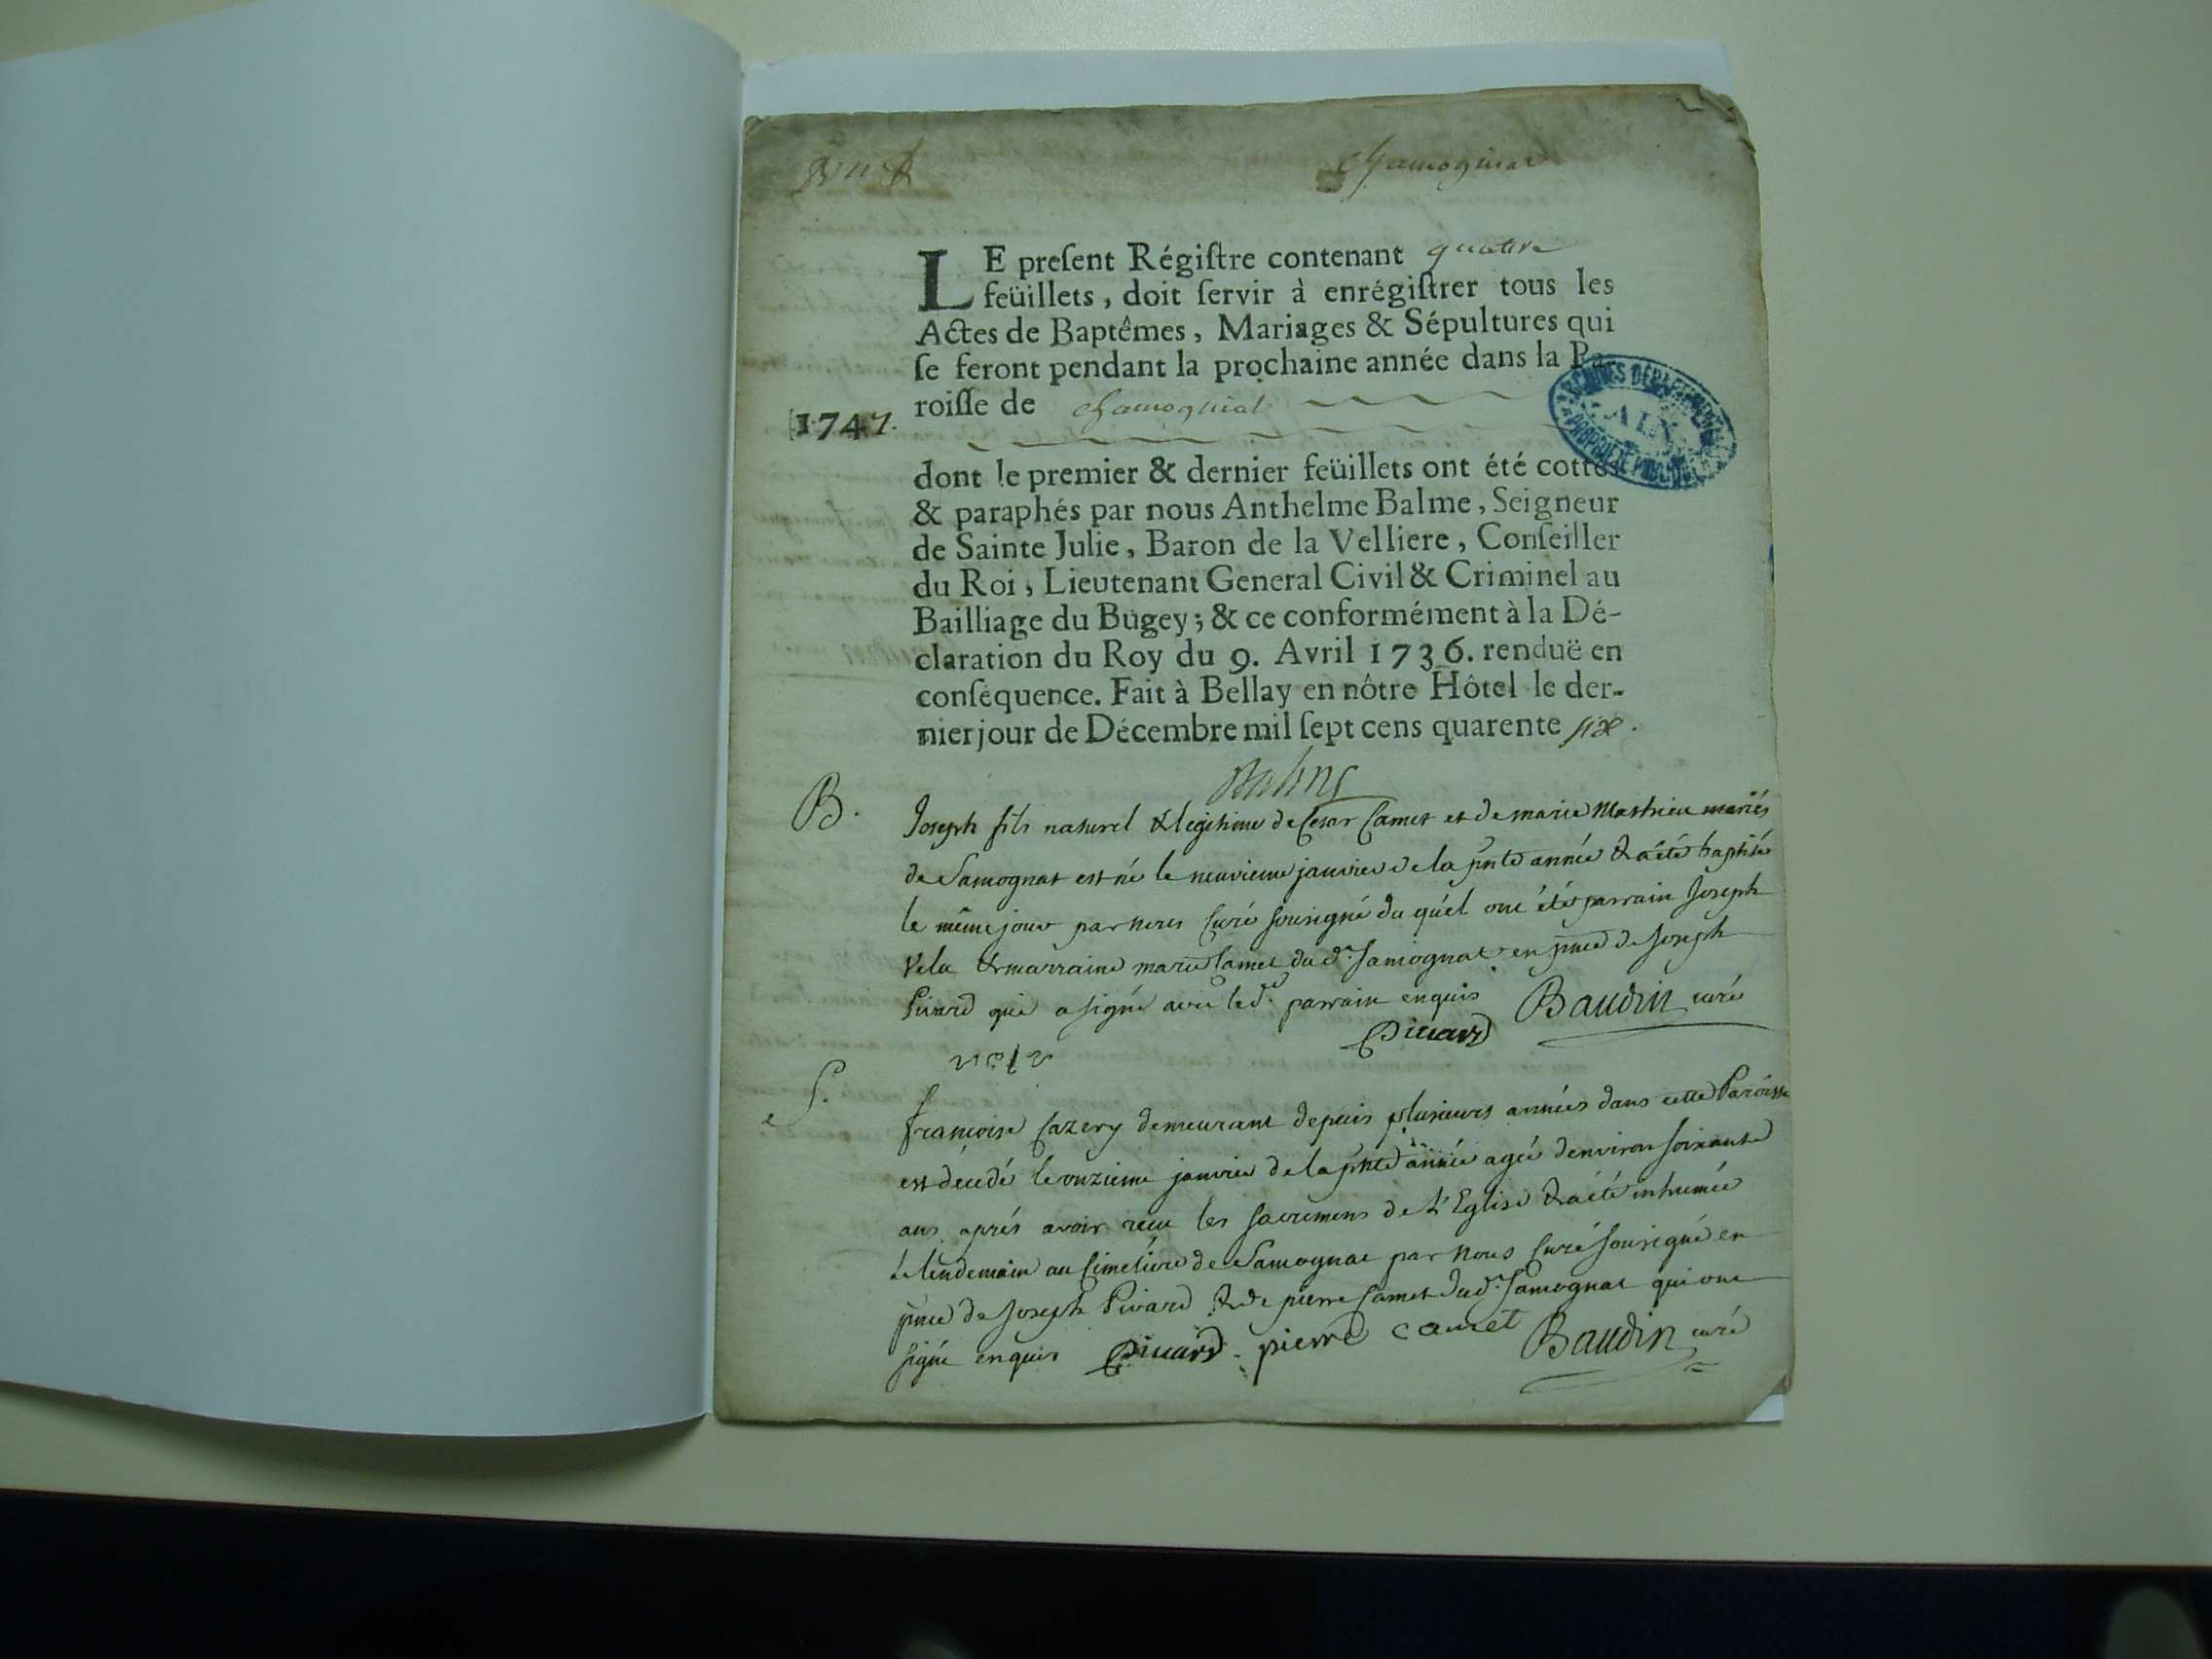 chamoginat
LE preſent Régiſtre contenant quatre
feüillets, doit ſervir à enrégiſtrer tous les
Actes de Baptêmes, Mariages & Sépultures qui
ſe feront pendant la prochaine année dans la Pa-
roiſſe de chamoginat
1747.
ARCHIVES DEPARTEMENTALES
AIN
PROPRIETE PUBLIQUE
dont le premier & dernier feüillets ont été cottés
& paraphés par nous Anthelme Balme, Seigneur
de Sainte Julie, Baron de la Velliere, Conſeiller
du Roi, Lieutenant General Civil & Criminel au
Bailliage du Bugey; & ce conformément à la Dé-
claration du Roy du 9. Avril 1736. renduë en
conſéquence. Fait à Bellay en nôtre Hôtel le der-
nier jour de Décembre mil ſept cens quarente six.
Balme
B.
Joseph fils naturel & legitime de Cesar Camet et de marie Mathieu mariés
de Samognat est né le neuvieme janvier de la pnte année & a été baptisé
le même jour par nous Curé sousigné du quél ont étés parrain Joseph
Velu & marraine marie Camet du d. Samognat en pnce de Joseph
Pivard qui a signé avec le d. parrain enquis Baudin curé
Pivard
S.
francoise Cazery demeurant depuis plusieurs années dans cette Paroisse
est décédé le onzieme janvier de la pnte année agée d'environ soixante
ans aprés avoir recu les sacremens de L'Eglise & a été inhumée
le lendemain au Cimetiére de Samognat par nous Curé sousigné en
pnce de Joseph Pivard & de pierre Camet du d. Samognat qui ont
signé enquis Pivard pierre camet Baudin curé